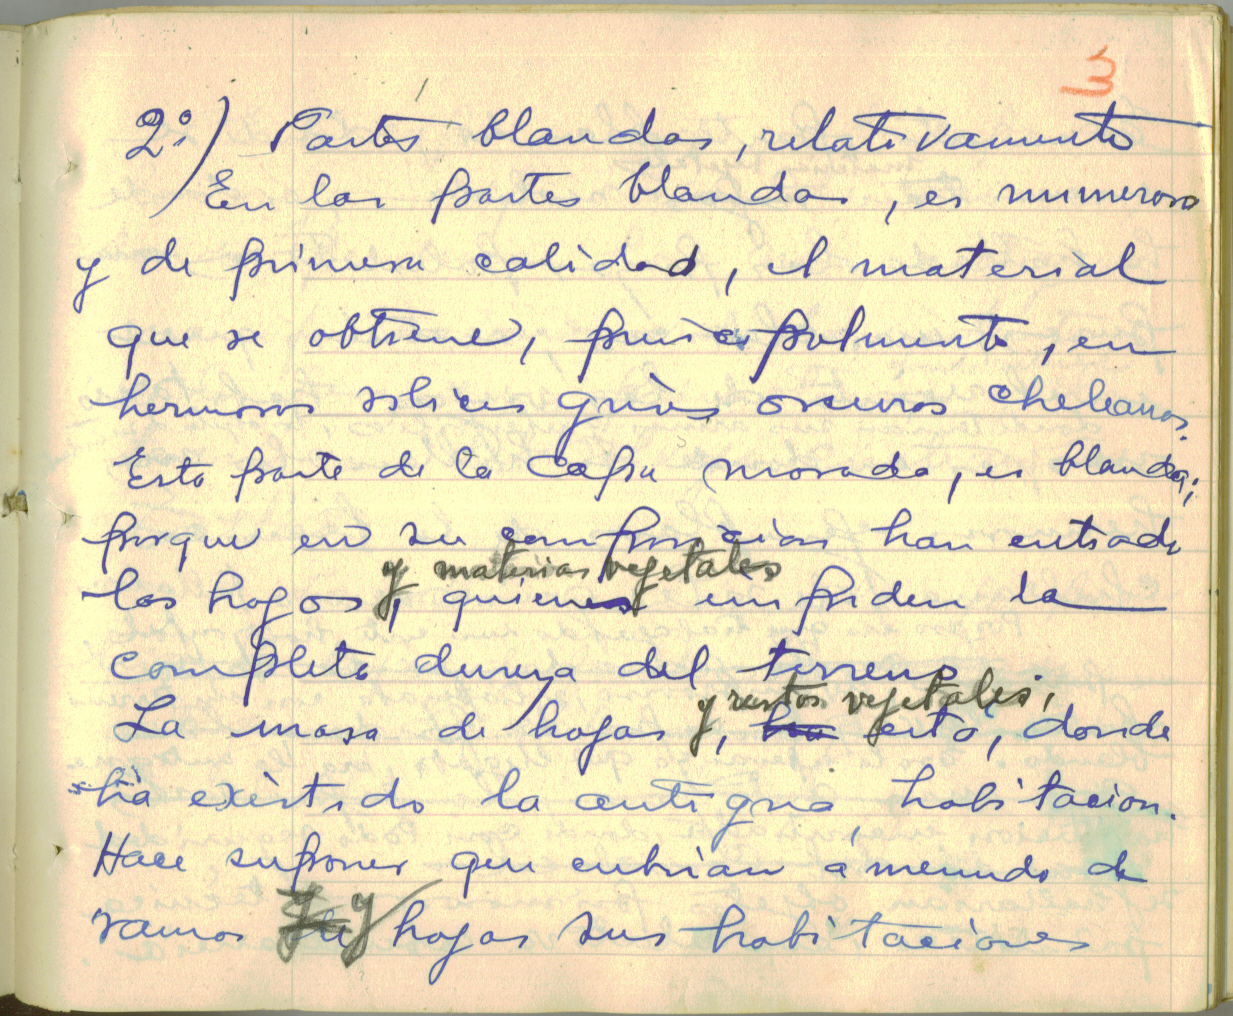 3
2º) Partes blandas, relativamente
En las partes blandas, es numeroso
y de primera calidad, el material
que se obtiene, principalmente, en
hermosos silices grises oscuros cheleanos.
Esta parte de la capa morada, es blanda;
porque en su composicion han entrado
y materias vegetales
las hojas, quienes impiden la
completa dureza del terreno.
y restos vegetales,
La masa de hojas, ha está, donde
ha existido la antigua habitacion.
Hace suponer que cubrian á menudo de
ramos y hojas sus habitaciones